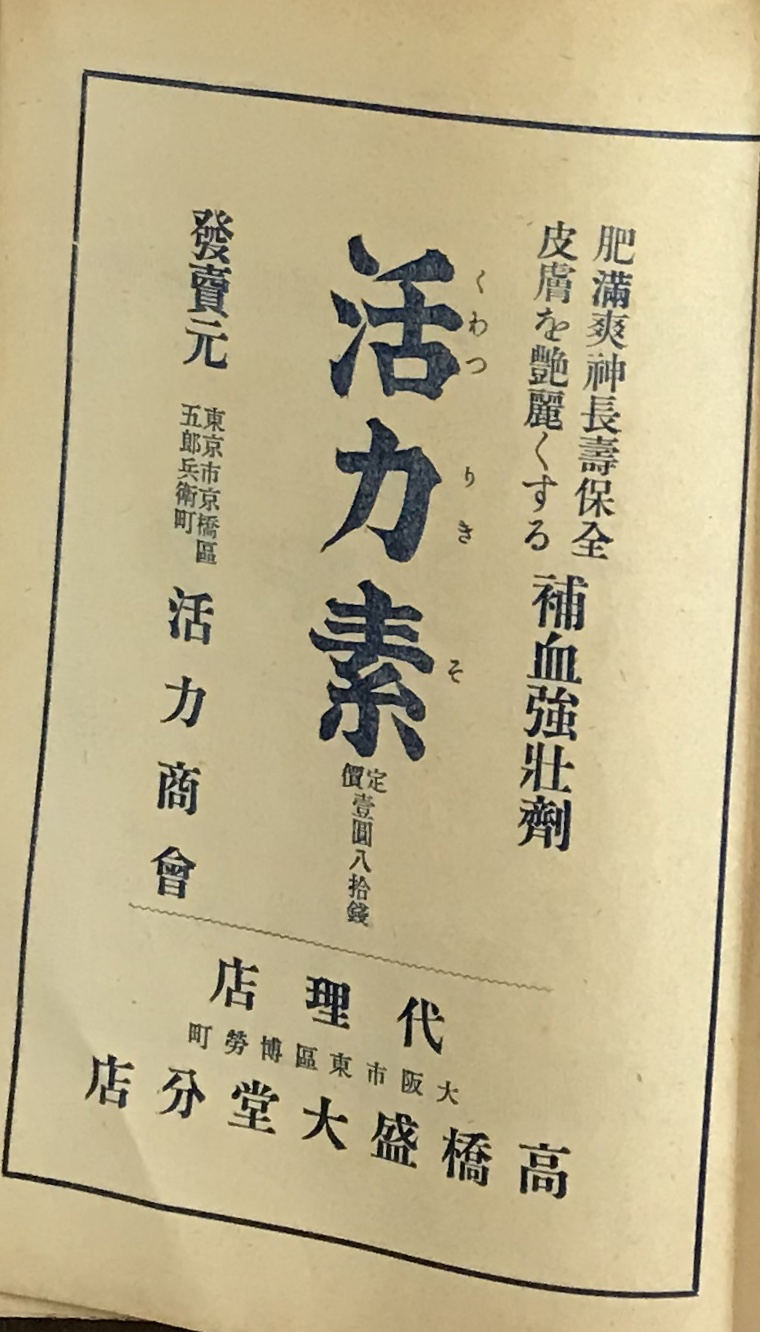 肥滿爽神長壽保全
皮膚を艶麗くする
補血強壯劑
くわつりきそ
活力素
定價
壹圓八拾錢
發賣元
東京市京橋區
五郎兵衛町
活力商會
代理店
大阪市東區博勞町
高橋盛大堂分店